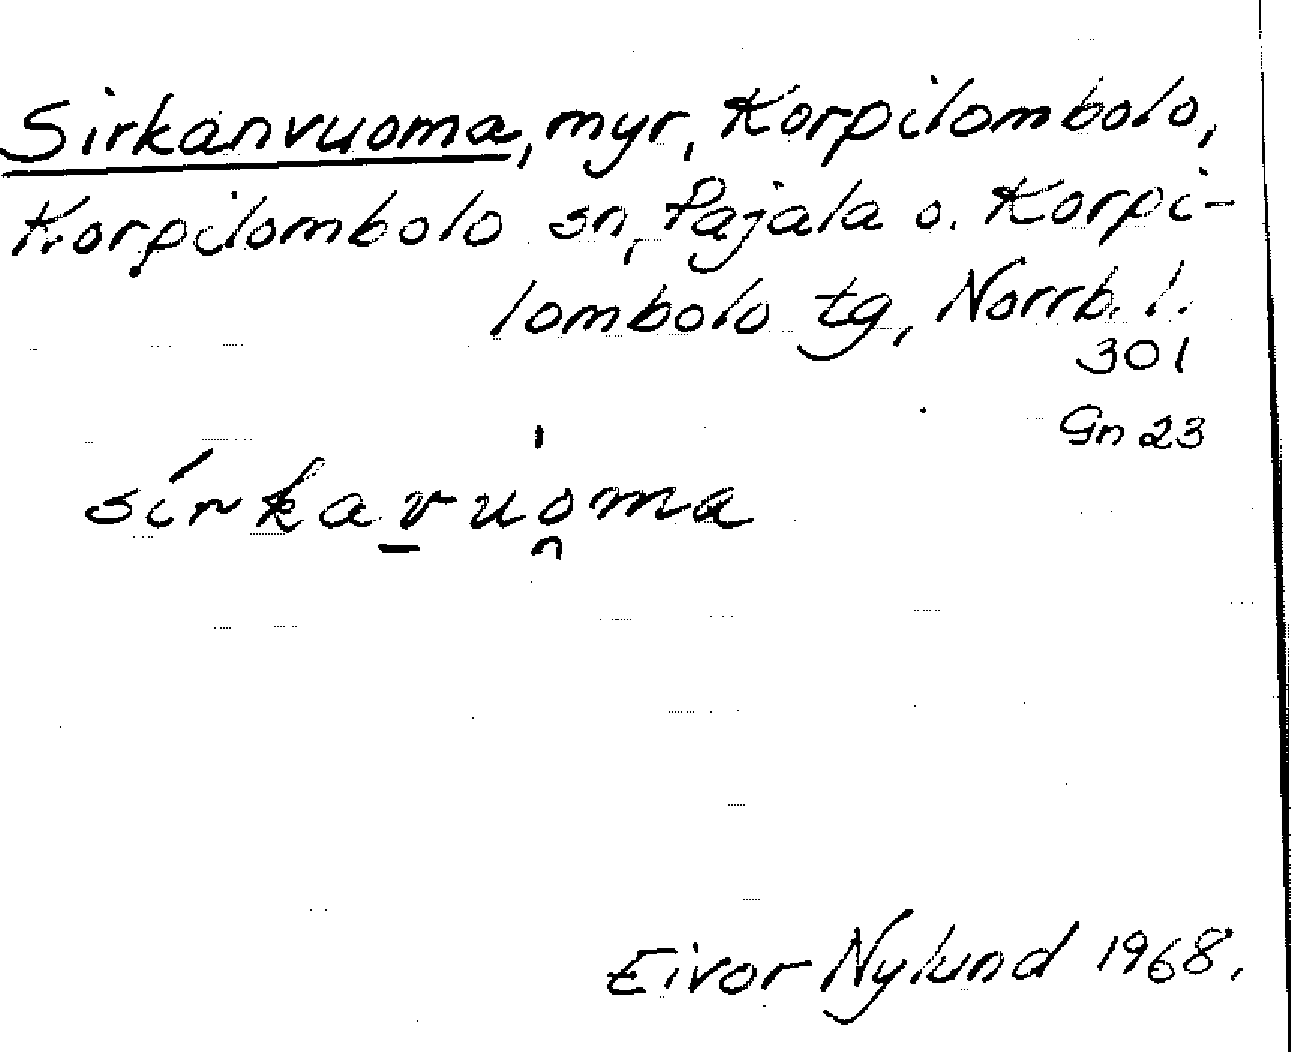 Sirkanvuoma, myr, Korpilombolo,
Korpilombolo sn, Pajala o. Korpi-
lombolo tg, Norrb. l.
301
Gn 23
sírkav̱uo̯ma
Eivor Nylund 1968.